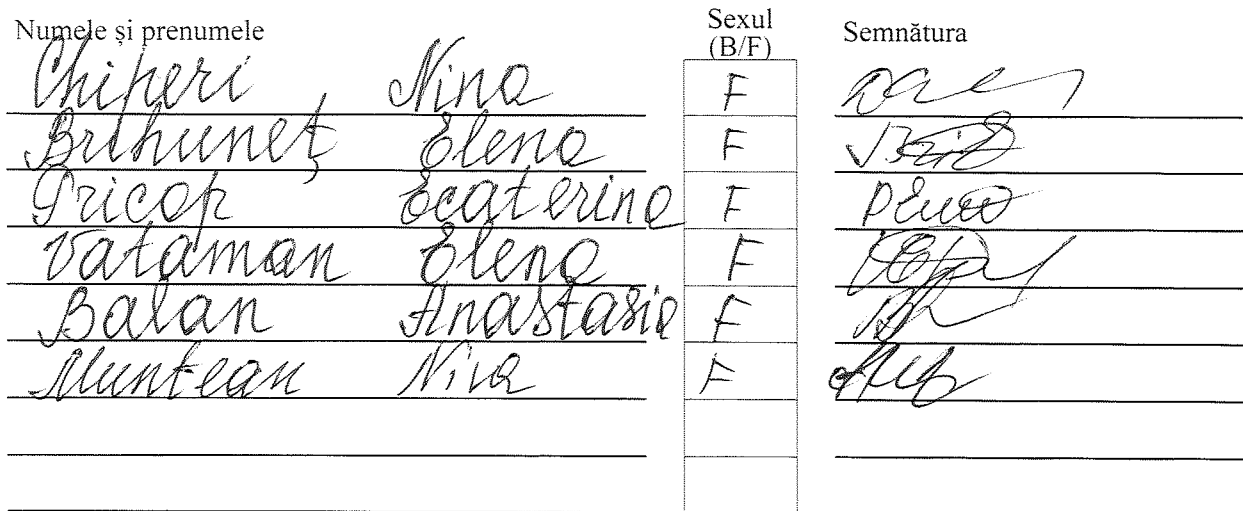 Numele și prenumele Sexul (B/F) Semnătura
Chiperi Nina F
Brihuneț Elena F
Pricop Ecaterina F
Vataman Elena F
Balan Anastasia F
Muntean Nina F